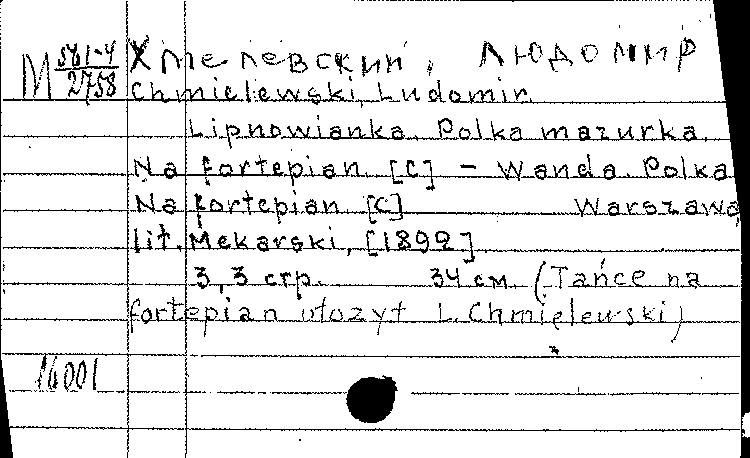 М 561-4/2758
Хмелевский, Людомир
Chmielewski, Ludomir.
Lipnowianka. Polka mazurka.
Na fortepian. [C] - Wanda. Polka
Na fortepian. [C] Warszawa
lit. Mekarski, [1892]
3, 3 стр. 34 см. (Tańce na
fortepian ułożył L. Chmielewski)
16001